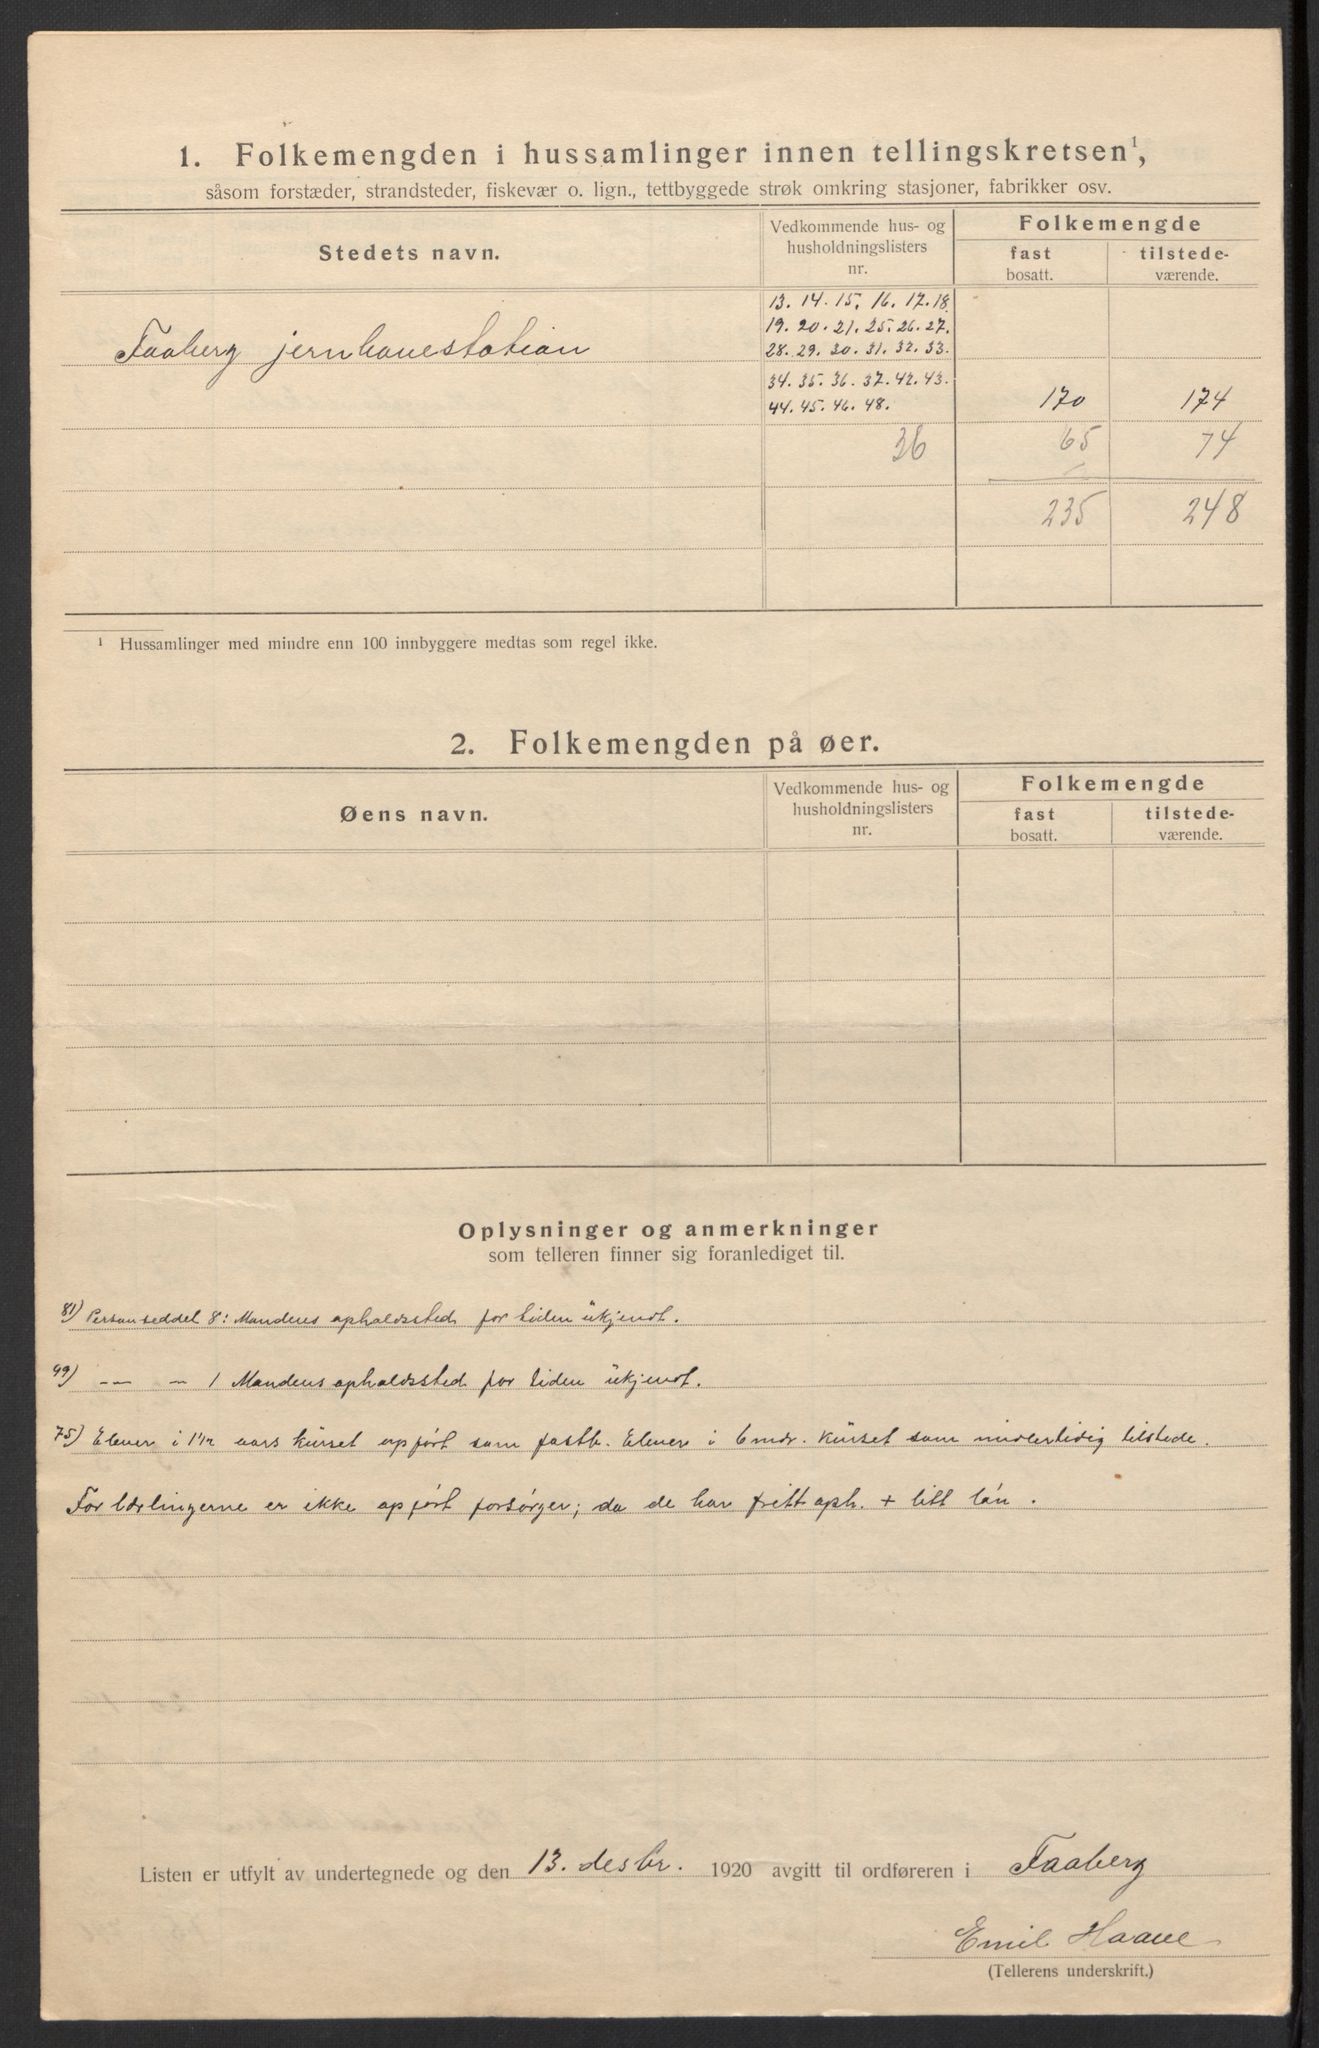 1. Folkemengden i hussamlinger innen tellingskretsen¹,
såsom forstæder, strandsteder, fiskevær o. lign., tettbyggede strøk omkring stasjoner, fabrikker osv.
Stedets navn.
Vedkommende hus- og husholdningslisters nr.
Folkemengde
fast bosatt.
tilstede-værende.
13. 14. 15. 16. 17. 18.
19. 20. 21. 25. 26. 27.
Faaberg jernbanestation
28. 29. 30. 31. 32. 33.
34. 35. 36. 37. 42. 43.
44. 45. 46. 48. 170 174
36 65 74
235 248
¹ Hussamlinger med mindre enn 100 innbyggere medtas som regel ikke.
2. Folkemengden på øer.
Øens navn.
Vedkommende hus- og husholdningslisters nr.
Folkemengde
fast bosatt.
tilstede-værende.
Oplysninger og anmerkninger
som telleren finner sig foranlediget til.
81) Personseddel 8: Mandens opholdssted for tiden ukjendt.
99) — — 1 Mandens opholdssted for tiden ukjendt.
75) Elever i 1 1/2 aars kurset opført som fastb. Elever i 6 mdr. kurset som midlertidig tilstede.
For lærlingerne er ikke opført forsørger; da de har fritt oph. + litt løn.
Listen er utfylt av undertegnede og den 13. desbr. 1920 avgitt til ordføreren i Faaberg
Emil Haave
(Tellerens underskrift.)